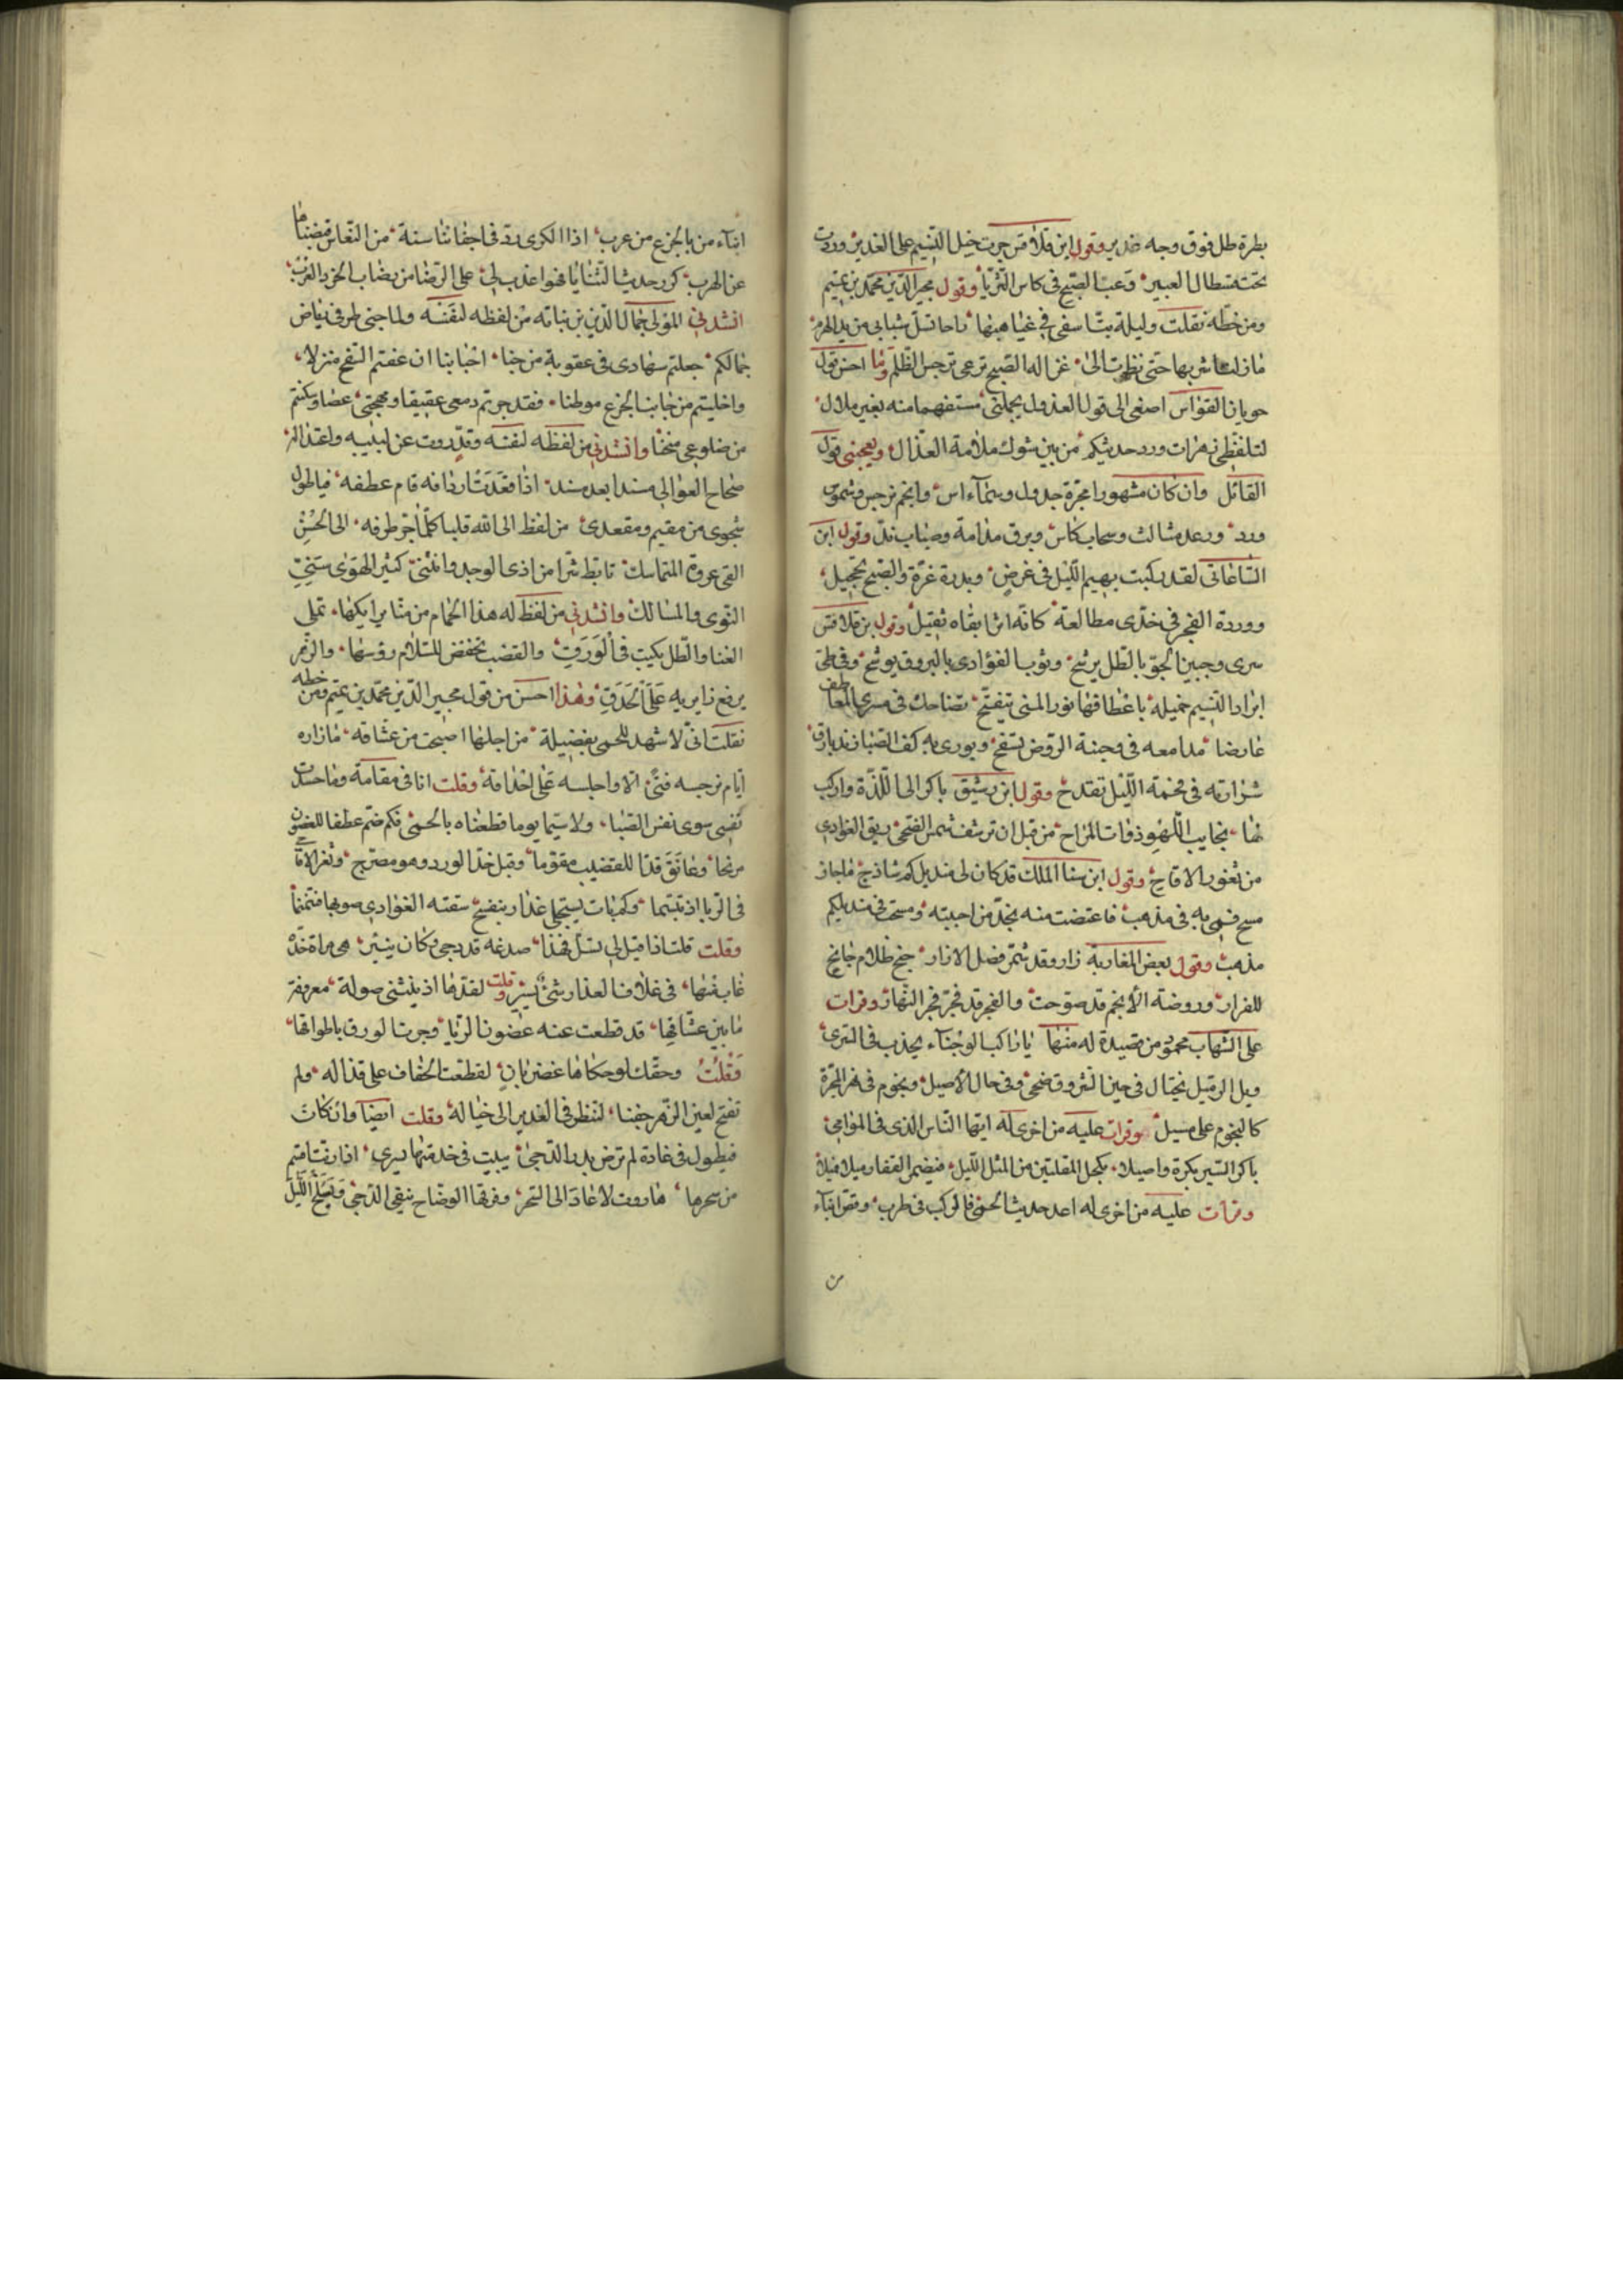 بطرة طل فوق وجه غدير وقول ابن قلاقس جرت خيل النسيم على الغدير وردت
تحت قسطال العبير وعب الصبح في كاس الثريا وقول مجير الدين محمد بن تميم
ومن خطه نقلت وليلة بت اسقى في غياهبها راحا تسل شبابي من يد الهرم
ما زلت اشربها حتى نظرت الى غزالة الصبح ترعى نرجس الظلم وما احسن قول
حوبان القواس اصغى الى قول العذول بجملتي مستفهما منه بغير ملال
لتلقطي زهرات ورد حديثكم من بين شوك ملامة العذال ويعجبني قول
القائل وان كان مشهورا مجرة جدول وسماء اس وانجم نرجس وشموس
ورد ورعد مثالث وسحاب كاس وبرق مدامة وضباب ند وقول ابن
الساعاتي لقد ركبت بهيم الليل في غرض وبدره غرة والصبح تحجيل
ووردة الفجر في خدى مطالعة كانه اثر ابقاه تقبيل وقول بن قلاقس
سرى وجبين الجو بالطل يرشح وثوب الغوادى بالبروق يوشح وفي طى
ابراد النسيم خميلة باعطافها نور المنى يتفتح تضاحك في مسرى المعاطف
عارضا مدامعه في وجنة الروض تسفح ويورى به كف الصبا زند بارق
شرارته في فحمة الليل تقدح وقول ابن رشيق باكر الى اللذة واركب
لها نجايب اللهو ذوات المزاح من قبل ان ترشف شمس الضحى ريق الغوادى
من ثغور الاقاح وقول ابن سنا الملك قد كان لى منديل كم ساذج ما جاز
مسح فمي به في مذهب فاعتضت منه بخد من احببته ومسحت في منديلكم
مذهب وقول بعض المغاربة زار وقد شمر فضل الازار جنح ظلام جانح
للفرار وروضة الانجم قد صوحت والفجر قد فجر فجر النهار وقرات
على الشهاب محمود من قصيدة له منها يا راكب الوجناء يجذب في السرى
وبل الرميل يختال في حين الشروق ضحى وفى حال الاصيل ونجوم في نهر المجرة
كالنجوم على مسيل وقرات عليه من اخرى له ايها الناس الذى في الموامي
باكر السير بكرة واصيلا يكحل المقلتين من اثمد الليل فيضم القفار ميلا فميلا
وقرات عليه من اخرى له اعد حديث الحمى فالركب في طرب وقص انباء
من
انباء من بالجزع من عرب اذا الكرى رد في اجفاننا سنة من النعاس قضينا ما
عن الهرب كرر حديث الثنايا فهو اعذب لى على الرضا من رضاب الخرد العرب
انشدنى المولى جمال الدين بن نباته من لفظه لنفسه ولما جنى طرفى رياض
جمالكم جعلتم سهادى في عقوبة من جنا احبابنا ان عفتم السفح منزلا
واخليتم من جانب الجزع موطنا فقد جرتم دمعى عقيقا ومهجتي غضا وسكنتم
من ضلوعى منحنا وانشدنى من لفظه لنفسه وقد روت عن
صحاح العوالي مسندا بعد مسند اذا قعدت اردافه قام عطفه فيا طول
شجوى من مقيم ومقعدى من لفظ الى الله قلبا كلما جر طرفه الى الحسن
القى عروة المتماسك تابط شرا من اذى الوجد وانثنى كثير الهوى شتى
النوى والمسالك وانشدنى من لفظه له هذا الحمام من منابر ايكها تملى
الغنا والطل يكتب في الورق والقضب تخفض للسلام رؤسها والزهر
يرفع زايريه على الحدق وهذا احسن من قول مجير الدين محمد بن تميم ومن خطه
نقلت انى لاشهد للحمى بفضيلة من اجلها اصبحت من عشاقه ما زاره
ايام نرجسه فتى الا واجلسه على احداقه وقلت انا في مقامة وما حسدت
نفسى سوى نفس الصبا ولا سيما يوما قطعناه بالحمى فكم ضم عطفا للغصون
مرنحا وعانق قدا للقضيب مقوما وقبل خد الورد وهو مضرج وثغر الاقاحى
في الربا اذ تبسما وكم بات يستجلى عذار بنفسج سقته الغوادى صوبها فتنمنما
وقلت قلت اذا قيل لى تسل فهذا صدغه قد دجى وكان ينير هى مراة خده
غاب منها في غلاف العذار شئ يسير وقلت لقدها اذ ينثنى صولة معروفة
ما بين عشاقها قد قطعت عنه غصون الربا وجرت الورق باطواقها
وقلت وحقك لو حكاها غصن بان لقطعت الخفاف على قذاله ولم
تفتح لعين الزهر جفنا لتنظر في الغدير الى خياله وقلت ايضا وان كانت
فيطول في غادة لم ترض بدر الدجى يبيت في خدمتها يسرى اذا رنت افتم
من سحرها هاروت لا عاد الى السحر وفرقها الوضاح ينفى الدجى ويسلخ الليل